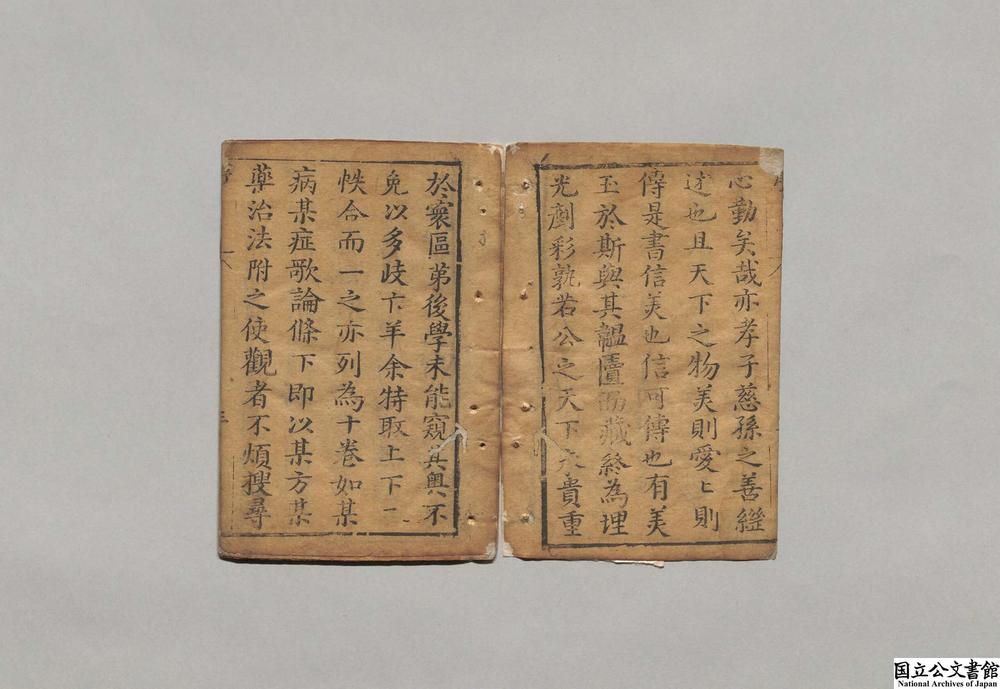 心勤矣哉亦孝子慈孫之善繼
述也且天下之物美則愛〻則
傳是書信美也信可傳也有美
玉於斯與其韞匵而藏終為埋
光剷彩孰若公之天下大貴重
於寰區第後學未能窺其奧不
免以多歧亡羊余特取上下一
帙合而一之亦列為十卷如某
病某症歌論條下即以某方某
藥治法附之使觀者不煩搜尋
国立公文書館
National Archives of Japan